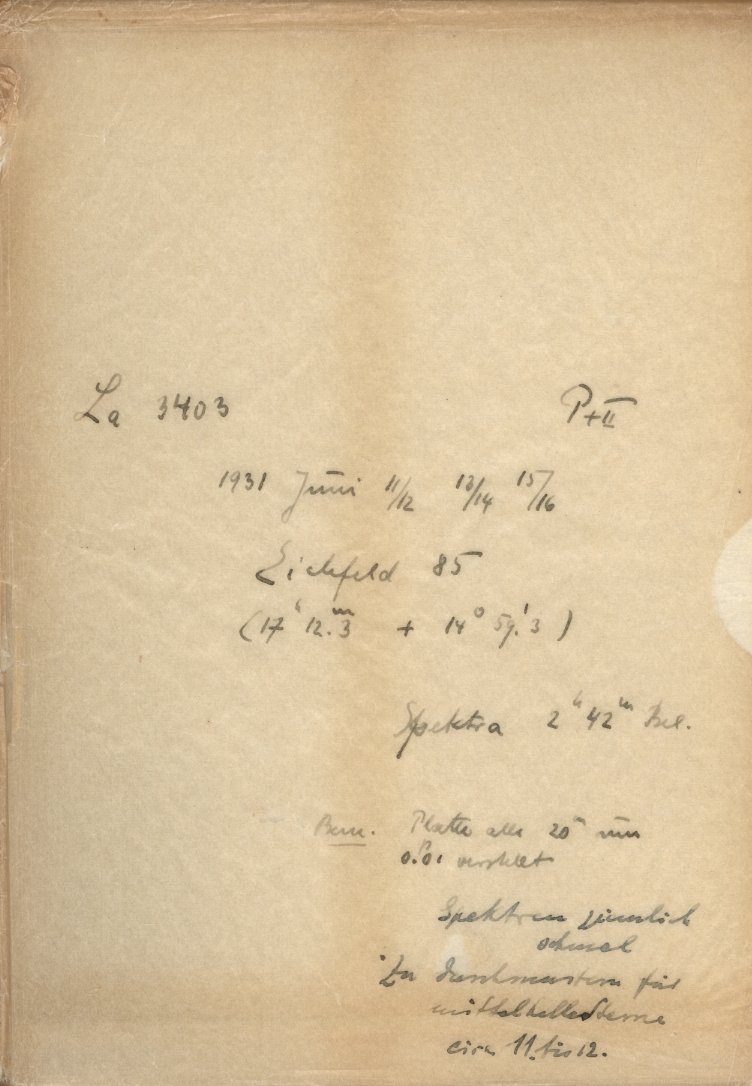 La 3403 P+II
1931 Juni 11/12 13/14 15/16
Eichfeld 85
(17ʰ 12.ᵐ3 + 14° 59.'3)
Spektra 2ʰ 42ᵐ Bel.
Bem. Platte alle 20ᵐ um
verstellt
Spektren ziemlich
schmal
Zu Durchmustern für
mittelhelle Sterne
circa 11. bis 12.